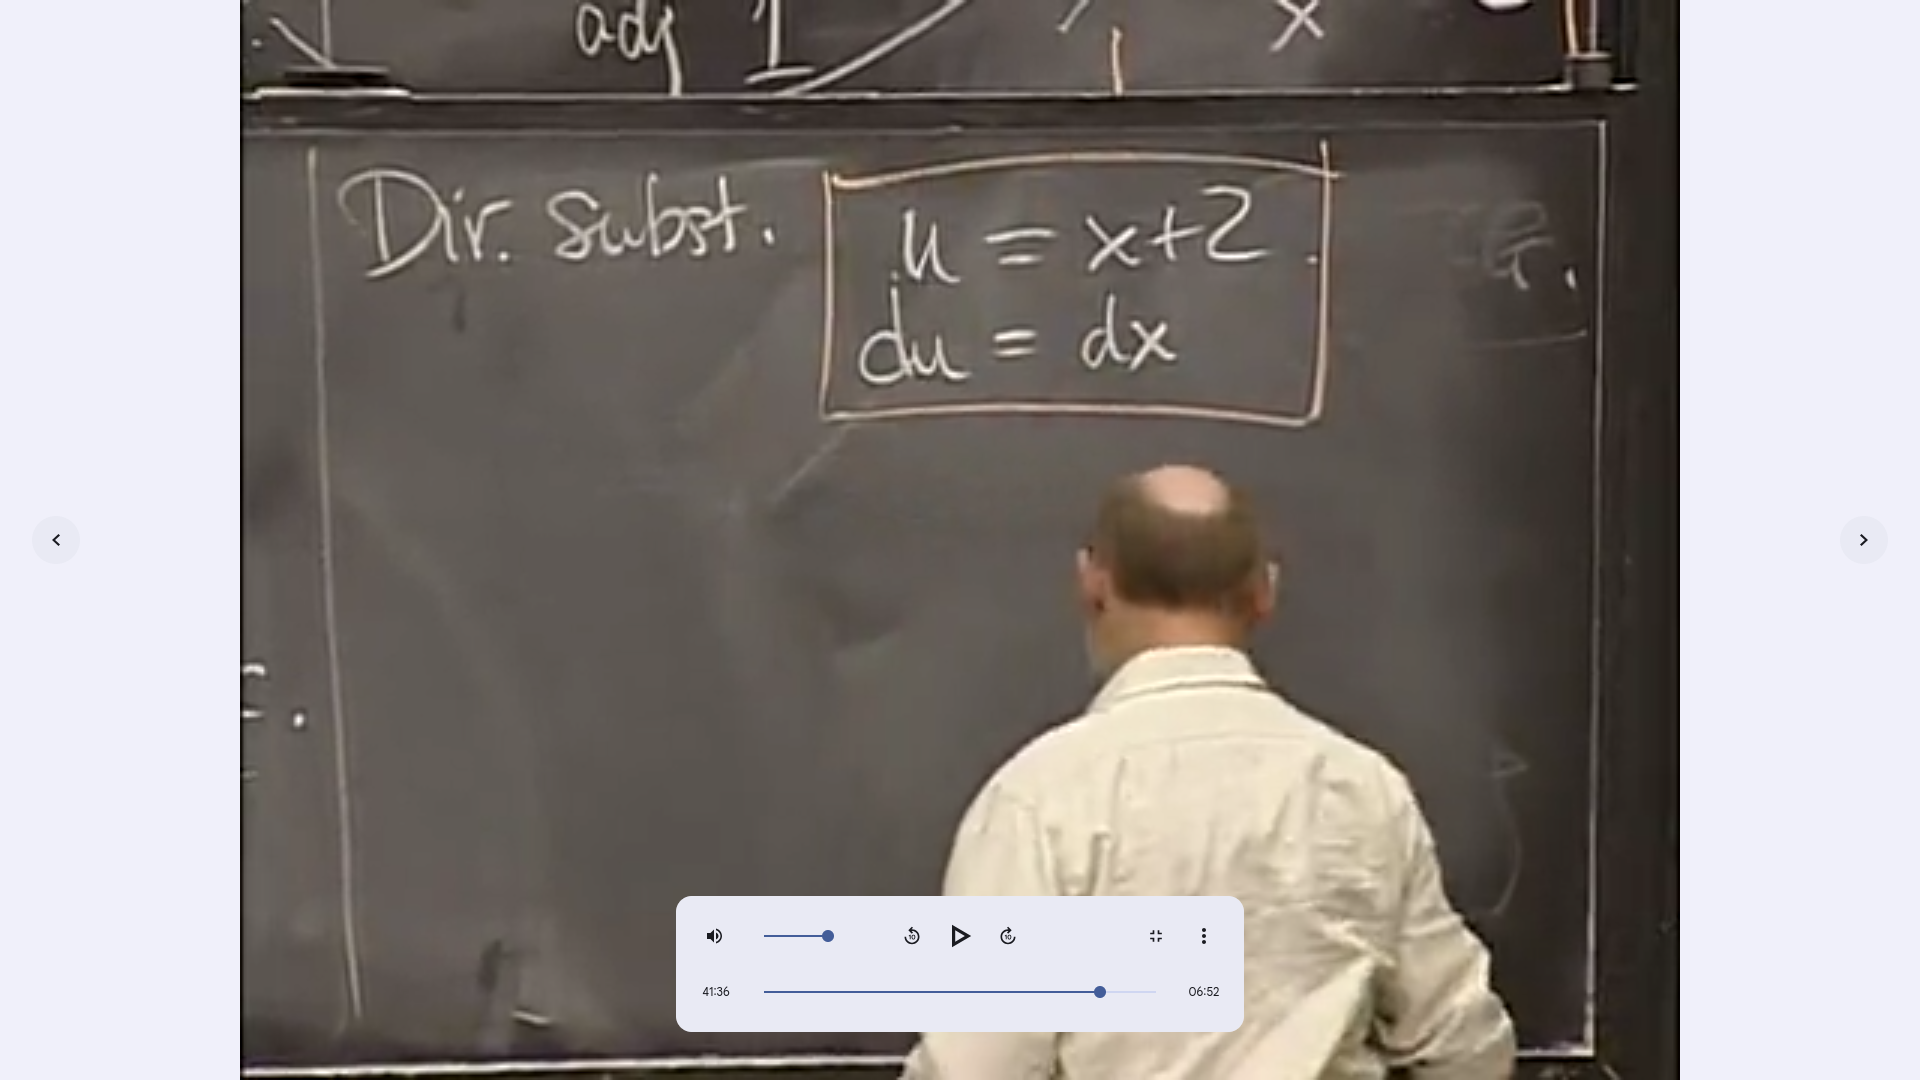 adj 1 x
Dir. Subst. u = x+2.
du = dx
41:36 06:52